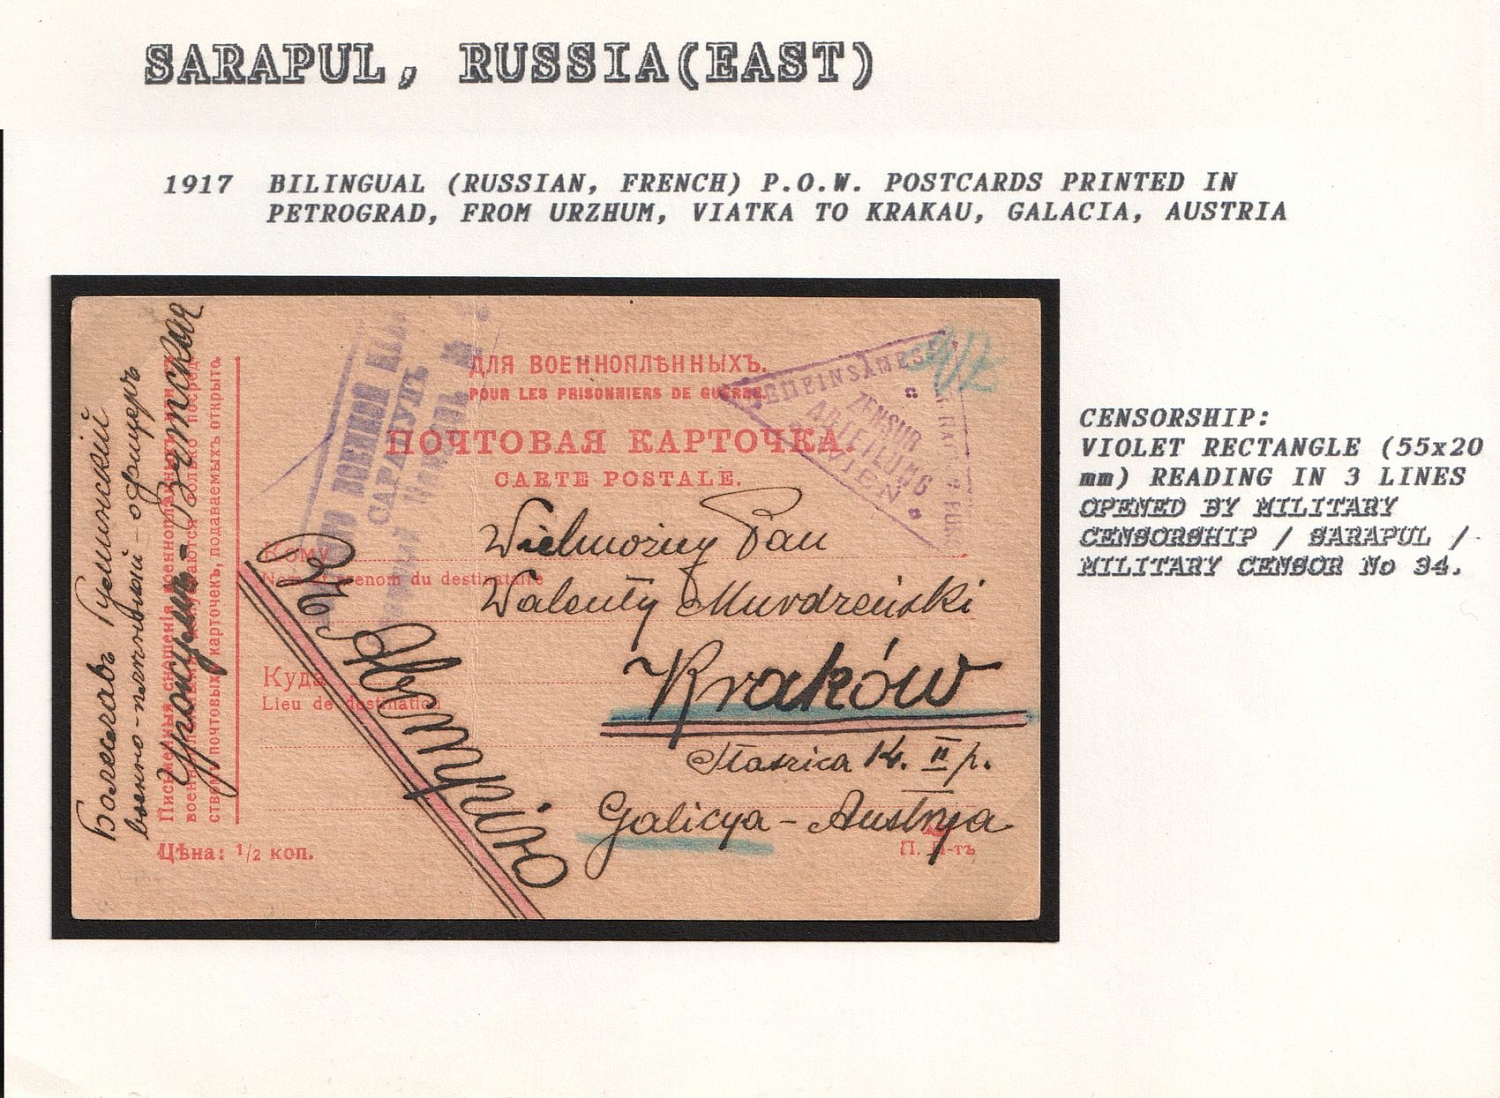 SARAPUL, RUSSIA(EAST)
1917 BILINGUAL (RUSSIAN, FRENCH) P.O.W. POSTCARDS PRINTED IN
PETROGRAD, FROM URZHUM, VIATKA TO KRAKAU, GALACIA, AUSTRIA
ДЛЯ ВОЕННОПЛѢННЫХЪ.
POUR LES PRISONNIERS DE GUERRE.
ПОЧТОВАЯ КАРТОЧКА.
CARTE POSTALE.
ВОЕННОЙ
САРАПУЛЪ
GEMEINSAMES
ZENSUR
ABTEILUNG
WIEN
Кому
Nom et prenom du destinataire
Wielmożny Pan
Walenty Murdzeński
Куда
Lieu de destination
Kraków
Staszica 14. II p.
Galicya - Austrya
Въ Австрію
Болеславъ
военно-плѣнный-офицеръ
Уржумъ - Вятская
Письменныя сношенія военноплѣнныхъ
только посред-
ствомъ почтовыхъ карточекъ, подаваемыхъ открыто.
Цѣна: 1/2 коп.
CENSORSHIP:
VIOLET RECTANGLE (55x20
mm) READING IN 3 LINES
OPENED BY MILITARY
CENSORSHIP / SARAPUL /
MILITARY CENSOR No 34.